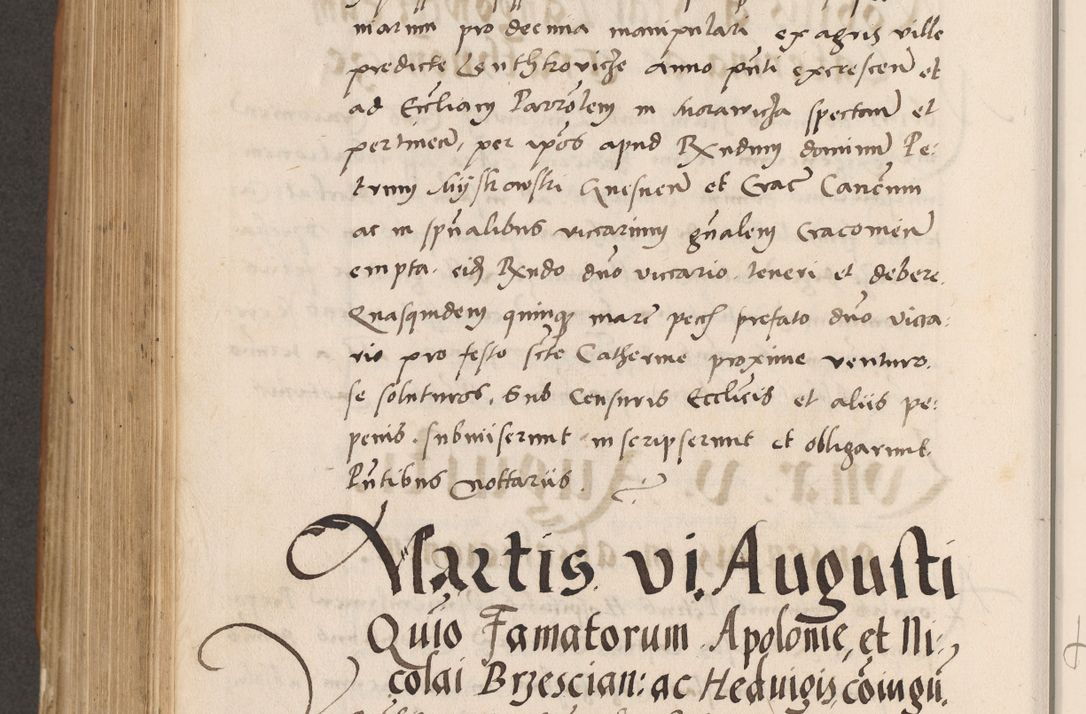 marum pro decima manipulari ex agris ville
predicte Zenthkovicze anno pñti excrescen̄ et
ad Eccliam Parrōlem in Morawicza spectan̄ et
pertinen̄, per ip̄os apud Rx̄ndum dominum Pe:
trum Mijskowski Gnesnen̄ et Crac̄ Canc̄num
ac in spūalibus vicarium gñalem Cracovien̄
empta. eid̄ Rx̄ndo dño vicario teneri et debere.
Quasquidem quinq̄ marc̄ pecc̄ prefato dño vica:
rio pro festo scte Catherine proxime venturo.
se soluturos, Sub Censuris Ecclīcis et aliis pe:
penis. submiserunt inscripserunt et obligarunt.
Pñtibus Nottariis.
Martis vi. Augusti
Quio Famatorum Apolonie, et Ni:
colai Brzescian: ac Hedvigis, cōiugū